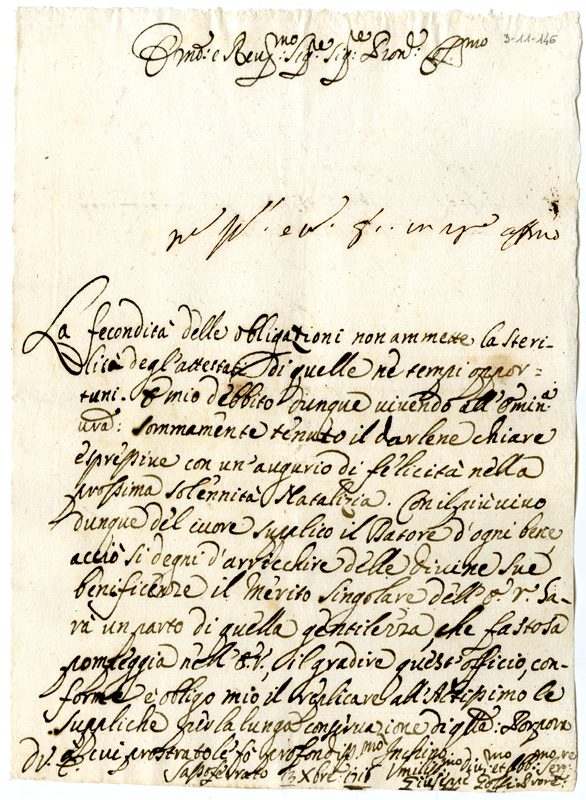 3-11-146
Em̃o: e Reu.mo Sig:re Sig:re Pron:
La fecondità delle obligationi non ammette la steri-
lità degl'attestati di quelle ne tempi oppor=
tuni. È mio debbito dunque vivendo all'Emin:a
v̅r̅a̅: sommamente tenuto il darlene chiare
espressive con un'augurio di felicità nella
prossima solennità Natalizia. Con il più vivo
dunque del cuore supplico il Datore d'ogni bene
acciò si degni d'arricchire delle Divine sue
beneficenze il Merito singolare dell'E. V. Sa-
rà un parto di quella gentilezza che fastosa
pompeggia nell'E.V., il gradire quest'officio, con-
forme è obligo mio il replicare all'Altissimo le
suppliche per la lunga conservazione di q.lla Porpora
di cui prostratole fò profondiss.mo inchino
Sassoferrato Xbre 1716
Umiliss.mo Div.mo et Obb.mo Ser.re
Giuseppe